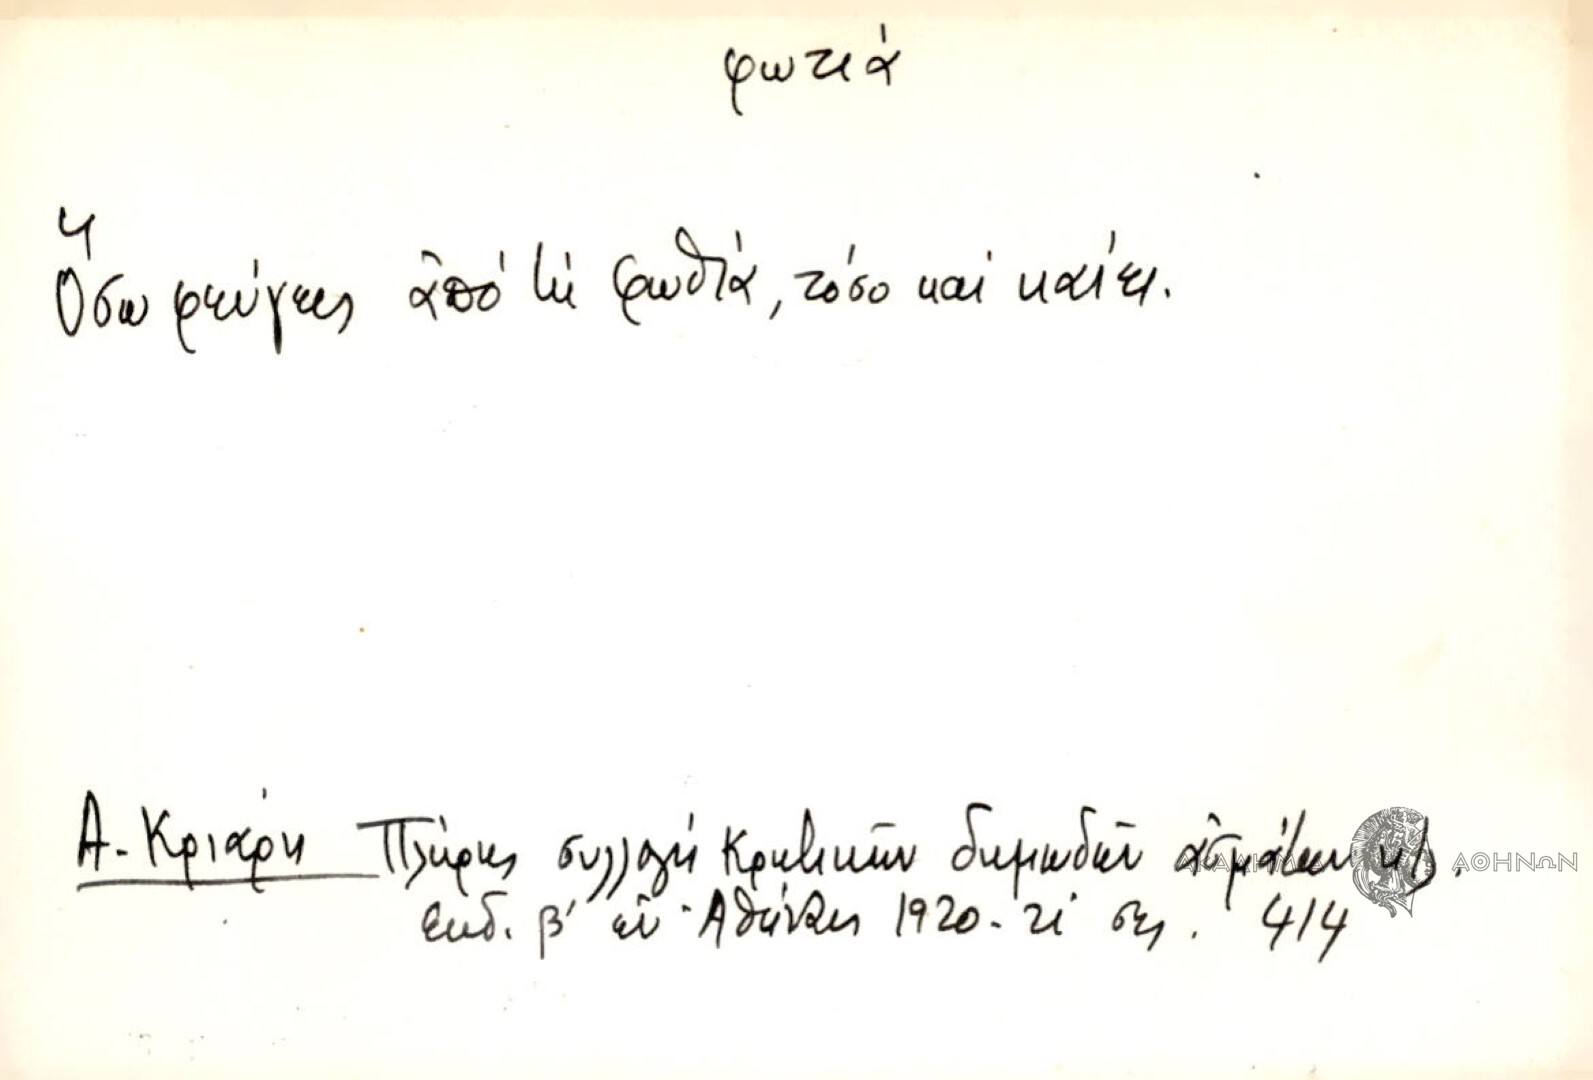 φωτιά
Ὅσω φεύγεις ἀπό τή φωθιά, τόσο καί καίει.
Α. Κριάρη Πλήρης συλλογή Κρητικῶν δημωδῶν ᾀσμάτων κλ.
ἐκδ. β' ἐν Ἀθήναις 1920. σελ. 414
ΑΚΑΔΗΜΙΑ ΑΘΗΝΩΝ